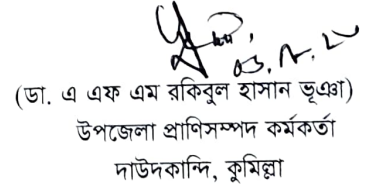 (ডা. এ এফ এম রকিবুল হাসান ভূঞা)
উপজেলা প্রাণিসম্পদ কর্মকর্তা
দাউদকান্দি, কুমিল্লা